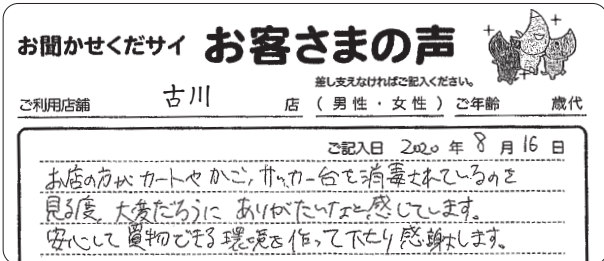 お聞かせくだサイ お客さまの声
差し支えなければご記入ください。
ご利用店舗 古川 店 (男性・女性) ご年齢 歳代
ご記入日 2020 年 8 月 16 日
お店の方がカートやかご、サッカー台を消毒されているのを
見る度、大変だろうに ありがたいなと感じています。
安心して買物できる環境を作って下さり感謝します。